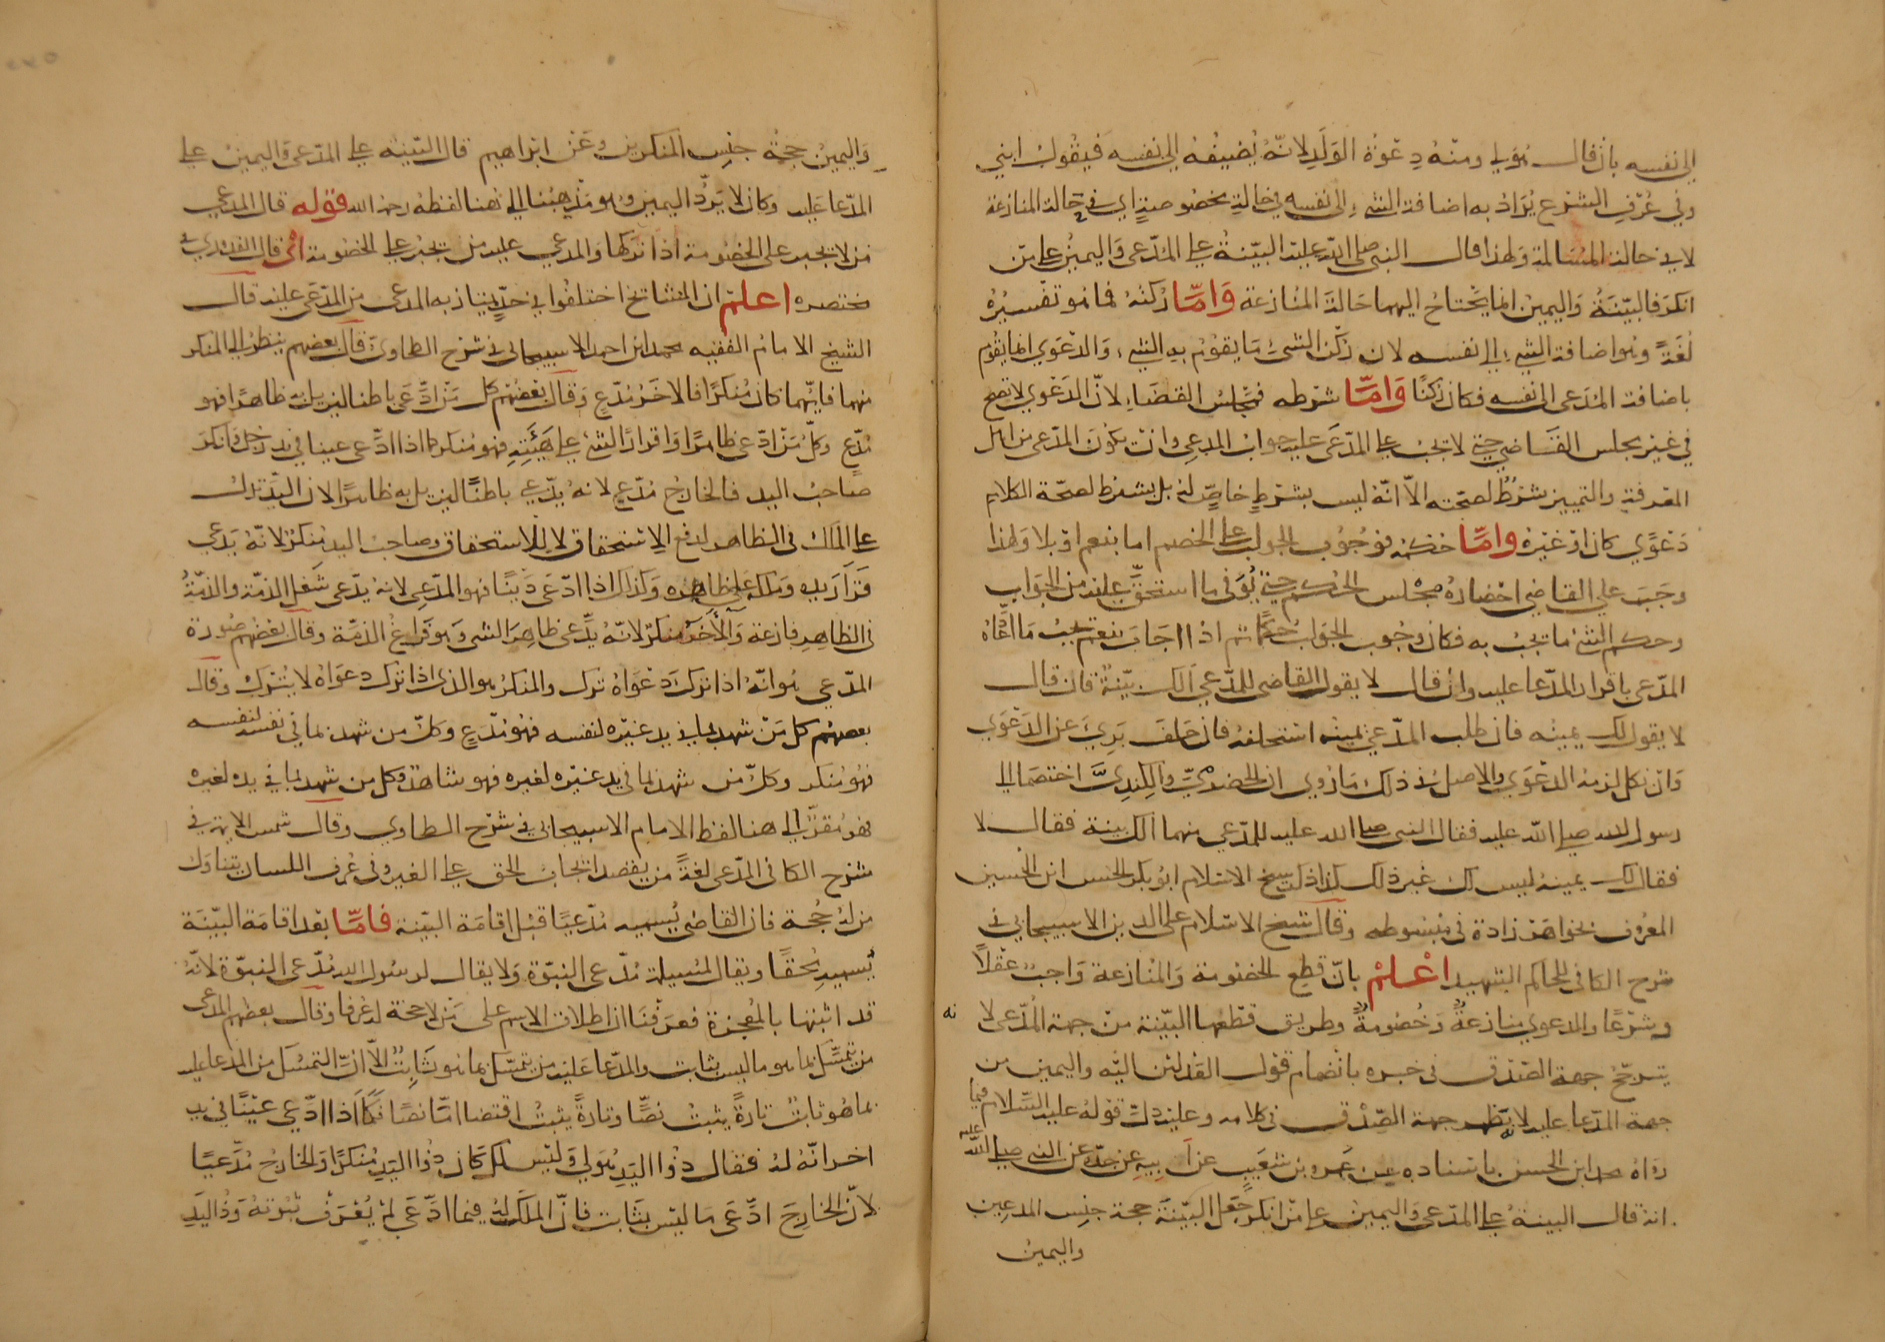 الى نفسه بان قال هو لي ومنه دعوة الولد لانه يضيفه الى نفسه فيقول ابني
وفي عرف الشرع يراد به اضافة الشيء الى نفسه في حالة مخصوصة اي في حالة المنازعة
لا في حالة المسالمة ولهذا قال النبي صلى الله عليه البينة على المدعى واليمين على من
انكر فالبينة واليمين انما يحتاج اليهما حالة المنازعة وامّا ركنه فما هو تفسيره
لغة وهو اضافة الشيء الى نفسه لان ركن الشيء ما يقوم به الشيء والدعوي انما يقوم
باضافة المدعى الى نفسه فكان ركنا وامّا شرطه فمجلس القضاء لان الدعوي لا تصح
في غير مجلس القاضي حتى لا تجب على المدعى عليه جواب المدعى وان يكون المدعى من اهل
المعرفة والتمييز شرط لصحته الا انه ليس بشرط خاص له بل يشترط لصحة الكلام
دعوي كان او غيره وامّا حكمه فوجوب الجواب على الخصم اما بنعم او بلا ولهذا
وجب على القاضي احضاره مجلس الحكم حتى يوفى ما استحق عليه من الجواب
وحكم الشئ ما يجب به فكان وجوب الجواب حكما ثم اذا اجاب بنعم يجب ما ادعاه
المدعى باقرار المدعا عليه وان قال لا يقول القاضى للمدعي الك بينة فان قال
لا يقول لك يمينه فان طلب المدعي يمينه استحلفه فان حلف بري عن الدعوي
وان نكل لزمه الدعوي والاصل في ذلك ما روي ان الحضرمي والكندي اختصما الى
رسول الله صلى الله عليه فقال النبى صلى الله عليه للمدعي منهما الك بينة فقال لا
فقال لك يمينه ليس لك غير ذلك كذا ذكر شيخ الاسلام ابو بكر الحسن ابن الحسين
المعروف بخواهر زاده في مبسوطه وقال شيخ الاسلام على الدين الاسبيجابي في
شرح الكافي للحاكم الشهيد اعلم بان قطع الخصومة والمنازعة واجب عقلا
وشرعا والدعوي منازعة وخصومة وطريق قطعها البينة من جهة المدعى لا نه
يترجح جهة الصدق في خبره بانضمام قول العدلين اليه واليمين من
جهة المدعا عليه لانه يظهر جهة الصدق في كلامه وعليه دل قوله عليه السلام فيما
رواه محمد ابن الحسن باسناده عن عمرو بن شعيب عن ابيه عن جده عن النبى صلى الله عليه
انه قال البينة على المدعى واليمين على من انكر جعل البينة حجة جنس المدعين
واليمين
واليمين حجة جنس المنكرين وعن ابراهيم قال البينة على المدعى واليمين على
المدعا عليه وكان لا يرد اليمين وهو مذهبنا الى هنا لفظه رحمه الله قوله قال المدعي
من لا يجبر على الخصومة اذا تركها والمدعي عليه من يجبر على الخصومة اي قال القدوري في
مختصره اعلم ان المشايخ اختلفوا في حد يمتاز به المدعى من المدعى عليه قال
الشيخ الامام الفقيه محمد ابن احمد الاسبيجابى في شرح الطحاوي قال بعضهم ينظر الى المنكر
منهما فايهما كان منكرا فالاخر مدع وقال بعضهم كل من ادعى باطنا ليزيل به ظاهرا فهو
مدع وكل من ادعى ظاهرا واقرار الشئ على هيئته فهو منكر كما اذا ادعى عينا في يد رجل وانكر
صاحب اليد فالخارج مدع لانه يدعي باطنا ليزيل به ظاهرا لان اليد تدل
على الملك في الظاهر لدفع الاستحقاق لا للاستحقاق وصاحب اليد منكر لانه يدعي
قرار يده وملكه على ظاهره وكذلك اذا ادعى دينا فهو المدعى لانه يدعى شغل الذمة والذمة
في الظاهر فارغة والاخر منكر لانه يدعى ظاهر الشى وهو فراغ الذمة وقال بعضهم صورة
المدعي هو انه اذا ترك دعواه ترك والمنكر هو الذى اذا ترك دعواه لا يترك وقال
بعضهم كل من شهد بما في يد غيره لنفسه فهو مدع وكل من شهد بما في نفسه لنفسه
فهو منكر وكل من شهد بما في يد غيره لغيره فهو شاهد وكل من شهد بما في يده لغيره
فهو مقر الى هنا لفظ الامام الاسبيجابى في شرح الطحاوي وقال شمس الايمة في
شرح الكافى المدعى لغة من يقصد ايجاب الحق على الغير وفى عرف اللسان يتناول
من لا حجة فان القاضى يسميه مدعيا قبل اقامة البينة فامّا بعد اقامة البينة
يسميه محقا ويقال لمسيلمة مدعى النبوة ولا يقال لرسول الله مدعى النبوة لانه
قد اثبتها بالمعجزة فعرفنا ان اطلاق الاسم على من لا حجة له عرفا وقال بعضهم المدعى
من تمسك بما هو ما ليس بثابت والمدعا عليه من يتمسك بما هو ثابت الا ان التمسك من المدعا عليه
بما هو ثابت تارة يثبت نصا وتارة يثبت اقتضا اما نصا فكما اذا ادعى عينا في يد
اخر انه له فقال ذوا اليد هو لي وليس لك كان ذوا اليد منكرا والخارج مدعيا
لان الخارج ادعى ما ليس بثابت فان الملك له فيما ادعى لم يعرف ثبوته وذو اليد